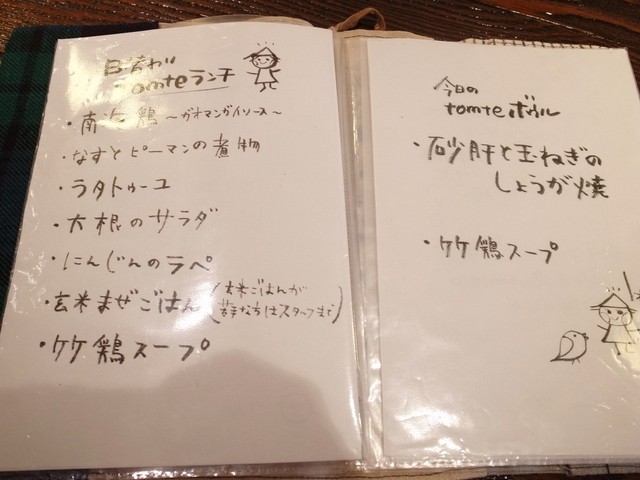 日替わり
tomteランチ
・南 鶏 〜ガオマンガイソース〜
・なすとピーマンの煮物
・ラタトゥーユ
・大根のサラダ
・にんじんのラペ
・玄米まぜごはん(玄米ごはんが
苦手な方はスタッフまで)
・ケケ鶏スープ
今日の
tomteボウル
・砂肝と玉ねぎの
しょうが焼
・ケケ鶏スープ